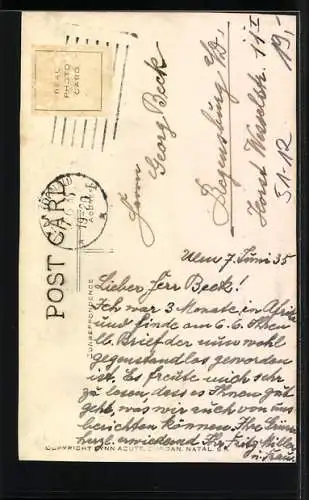 REAL
PHOTO
CARD
POST CARD
CORRESPONDENCE
ADDRESS
Herrn
Georg Beck
Regensburg a/D.
Horst Wesselstr. 11 I
51-12
19,-
Ulm 7 Juni 35
Lieber Herr Beck!
Ich war 3 Monate in Afrika
und finde am 6.6. Ihren
lb. Brief der nun wohl
gegenstandlos geworden
ist. Es freute mich sehr
zu lesen, dass es Ihnen gut
geht, was wir auch von uns
berichten können. Ihre Grüsse
herzl. erwidernd Ihr Fritz Miller
u. Frau
COPYRIGHT LYNN ACUTT, DURBAN, NATAL, S.A.